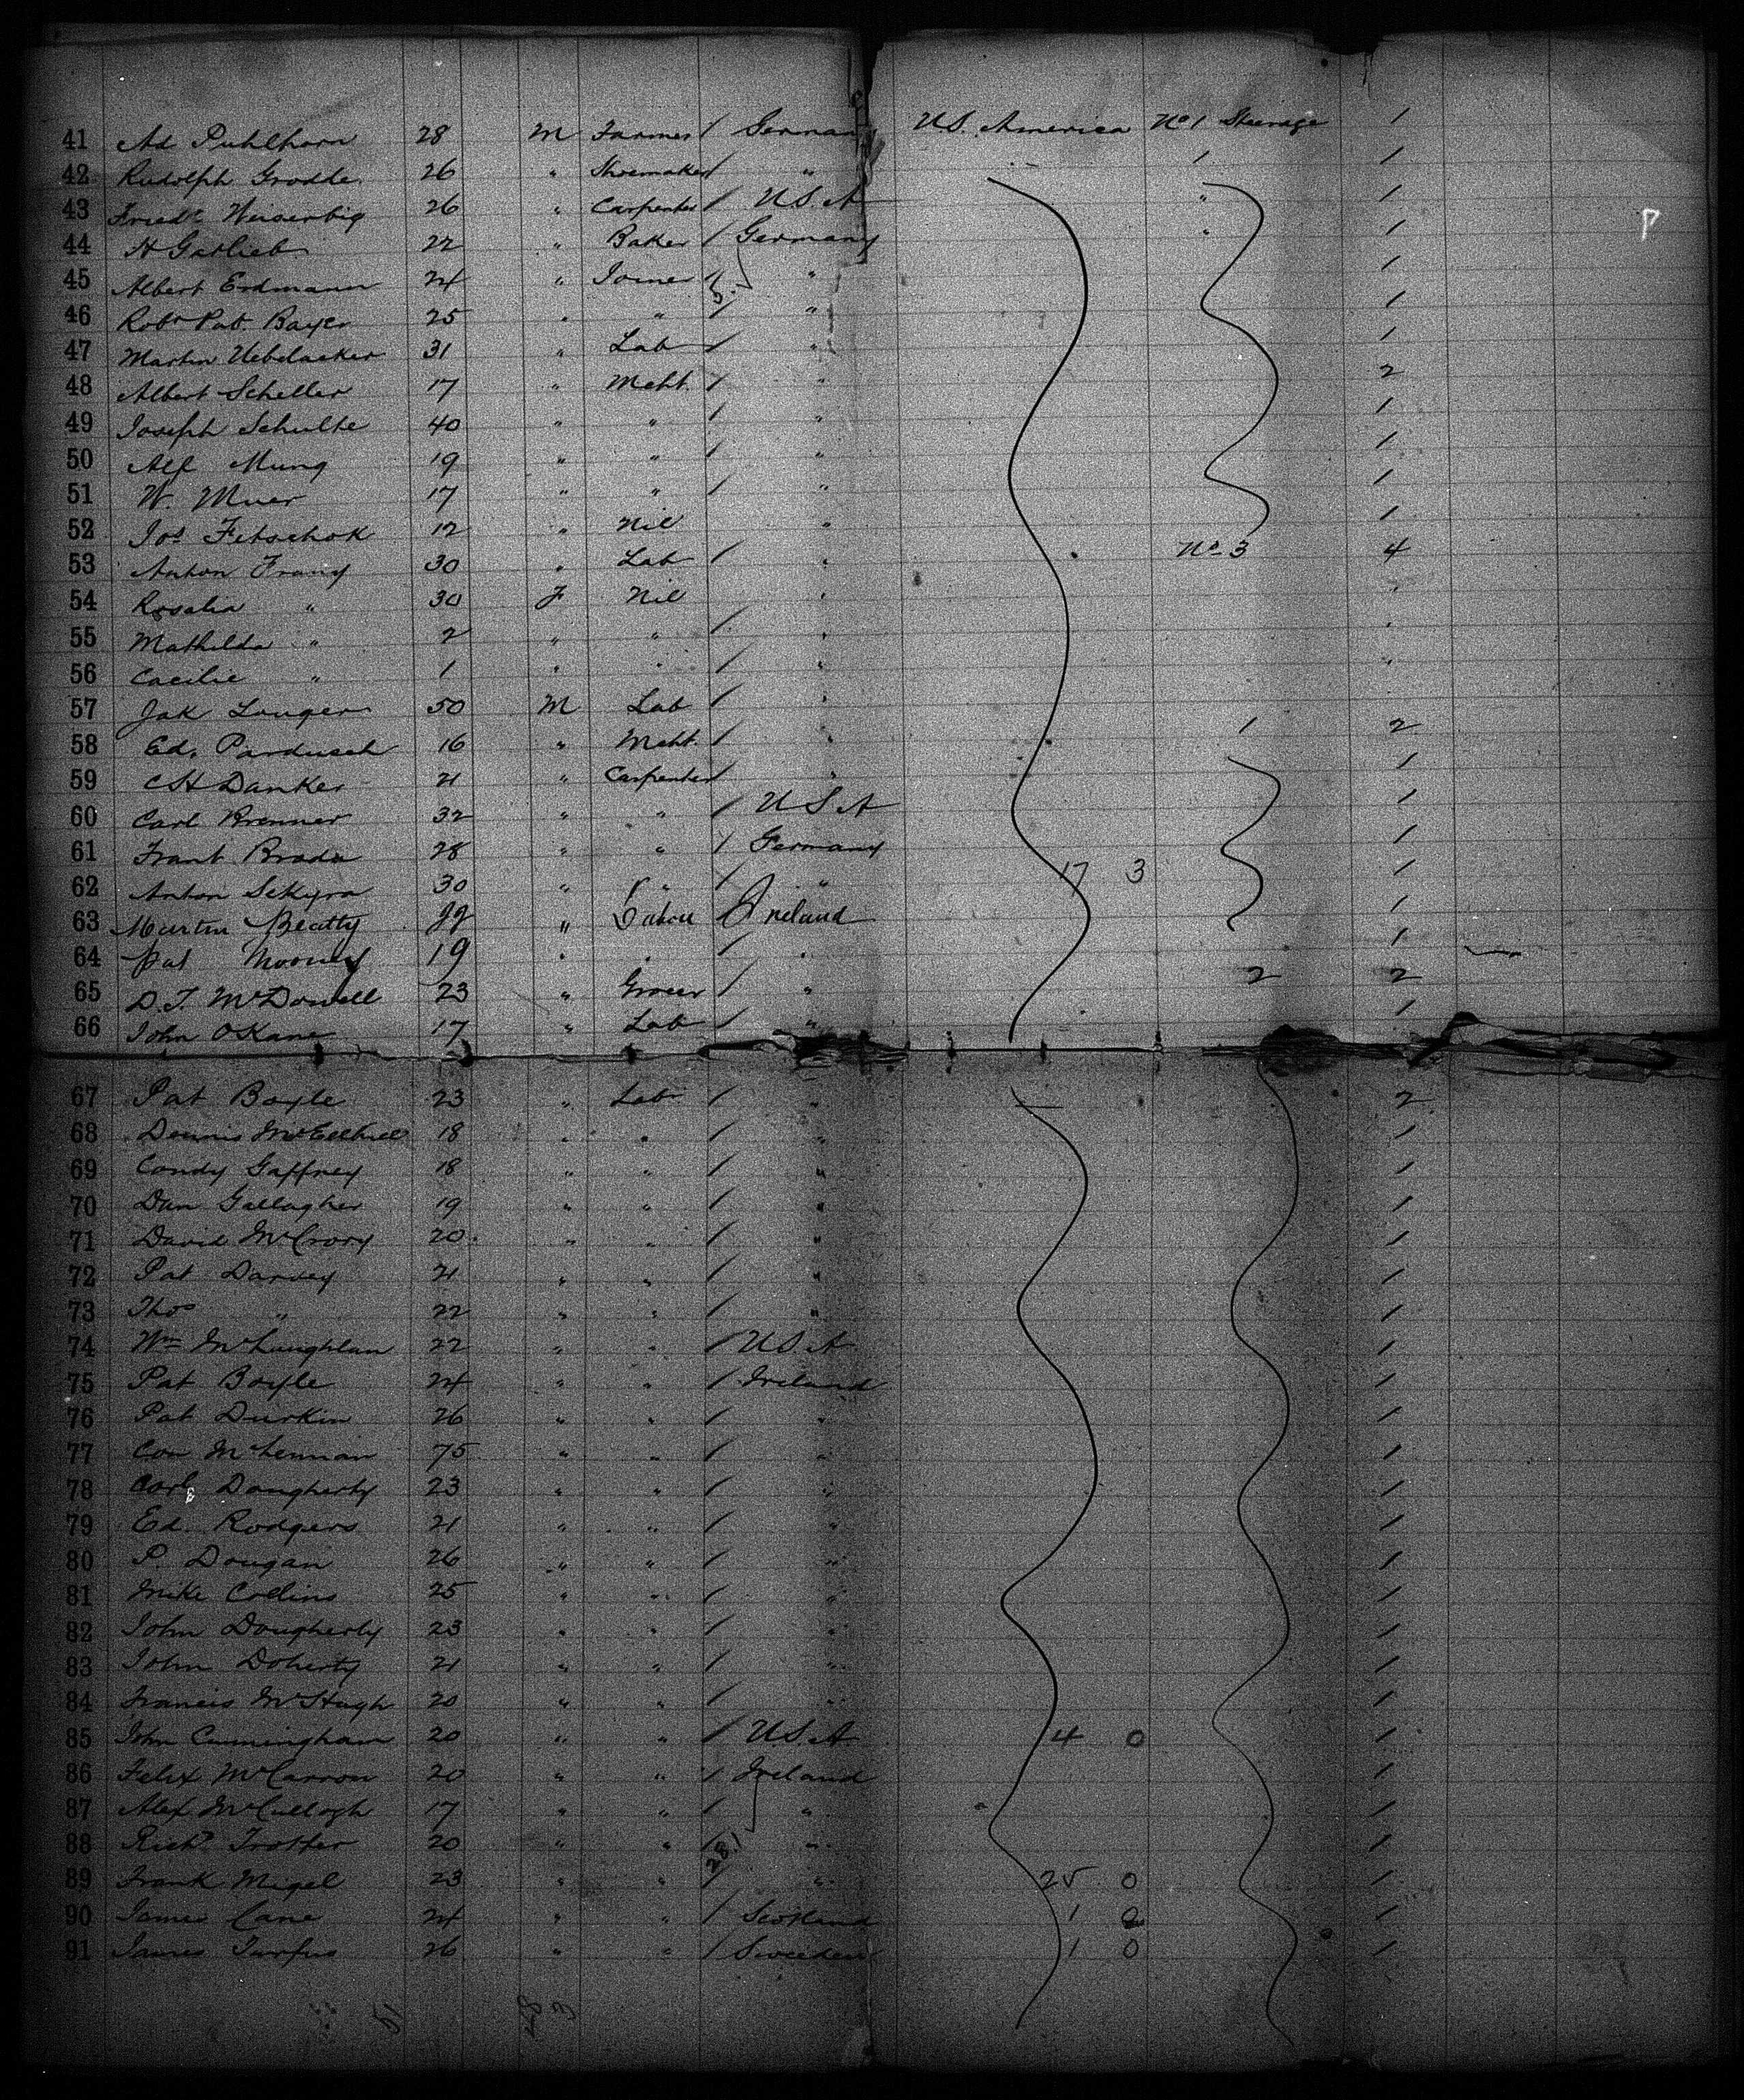 41 Ad Puhlhorn 28 M Farmer / German U.S. America No 1 Steerage 1
42 Rudolph Grodde 26 " Shoemaker / " 1 1
43 Friedr 26 " Carpenter / U.S.A " 1
44 H Garlieb 22 " Baker / Germany " 1
45 Albert Erdmann 24 " Joiner / " 1
46 Robt Pat. Bayer 25 " " / " 1
47 Martin Uebelacker 31 " Lab / " 1
48 Albert Scheller 17 " Mcht. / " 2
49 Joseph Schulte 40 " " / " 1
50 Alf Mung 19 " " / " 1
51 W. Muer 17 " " / " 1
52 Jos Fetschok 12 " Nil " 1
53 Anton Franz 30 " Lab / " No 3 4
54 Rosalia " 30 F Nil " "
55 Mathilda " 2 " " / " "
56 Cacilie " 1 " " / " "
57 Jak Langer 50 M Lab / "
58 Ed. Pardusch 16 " Mcht. / " 1 2
59 C H Danker 21 " Carpenter / " 1
60 Carl Brenner 32 " " / U S A 1
61 Frant Brada 28 " " / Germany 1
62 Anton Sekyra 30 " " / " 17 3 1
63 Martin Beatty " Labou / Ireland 1
64 Pat Mooney 19 " " / " 1
65 D. J. McDowell 23 " Grocer / " 2 2
66 John O'Kane 17 " Lab / " 1
67 Pat Boyle 23 " Lab / " 2
68 Dennis 18 " " / " 1
69 Condy Gaffney 18 " " / " 1
70 Dan Gallagher 19 " " / " 1
71 David McCrory 20 " " / " 1
72 Pat Darvey 21 " " / " 1
73 Thos " 22 " " / " 1
74 Wm McLaughlan 22 " " / U S A 1
75 Pat Boyle 24 " " / Ireland 1
76 Pat Durkin 26 " " / " 1
77 Con McLennan 75 " " / " 1
78 Dougherty 23 " " / " 1
79 Ed. Rodgers 21 " " / " 1
80 P. Dougan 26 " " / " 1
81 Mike Collins 25 " " / " 1
82 John Dougherty 23 " " / " 1
83 John Doherty 21 " " / " 1
84 Francis McHugh 20 " " / " 1
85 John Cunningham 20 " " / U.S.A 4 0 1
86 Felix McCarron 20 " " / Ireland 1
87 Alex McCullogh 17 " " / " 1
88 Richd Trotter 20 " " / " 1
89 Frank Migel 23 " " / " 25 0 1
90 James Cane 24 " " / Scotland 1 0 1
91 James 26 " " / Sweeden 1 0 1